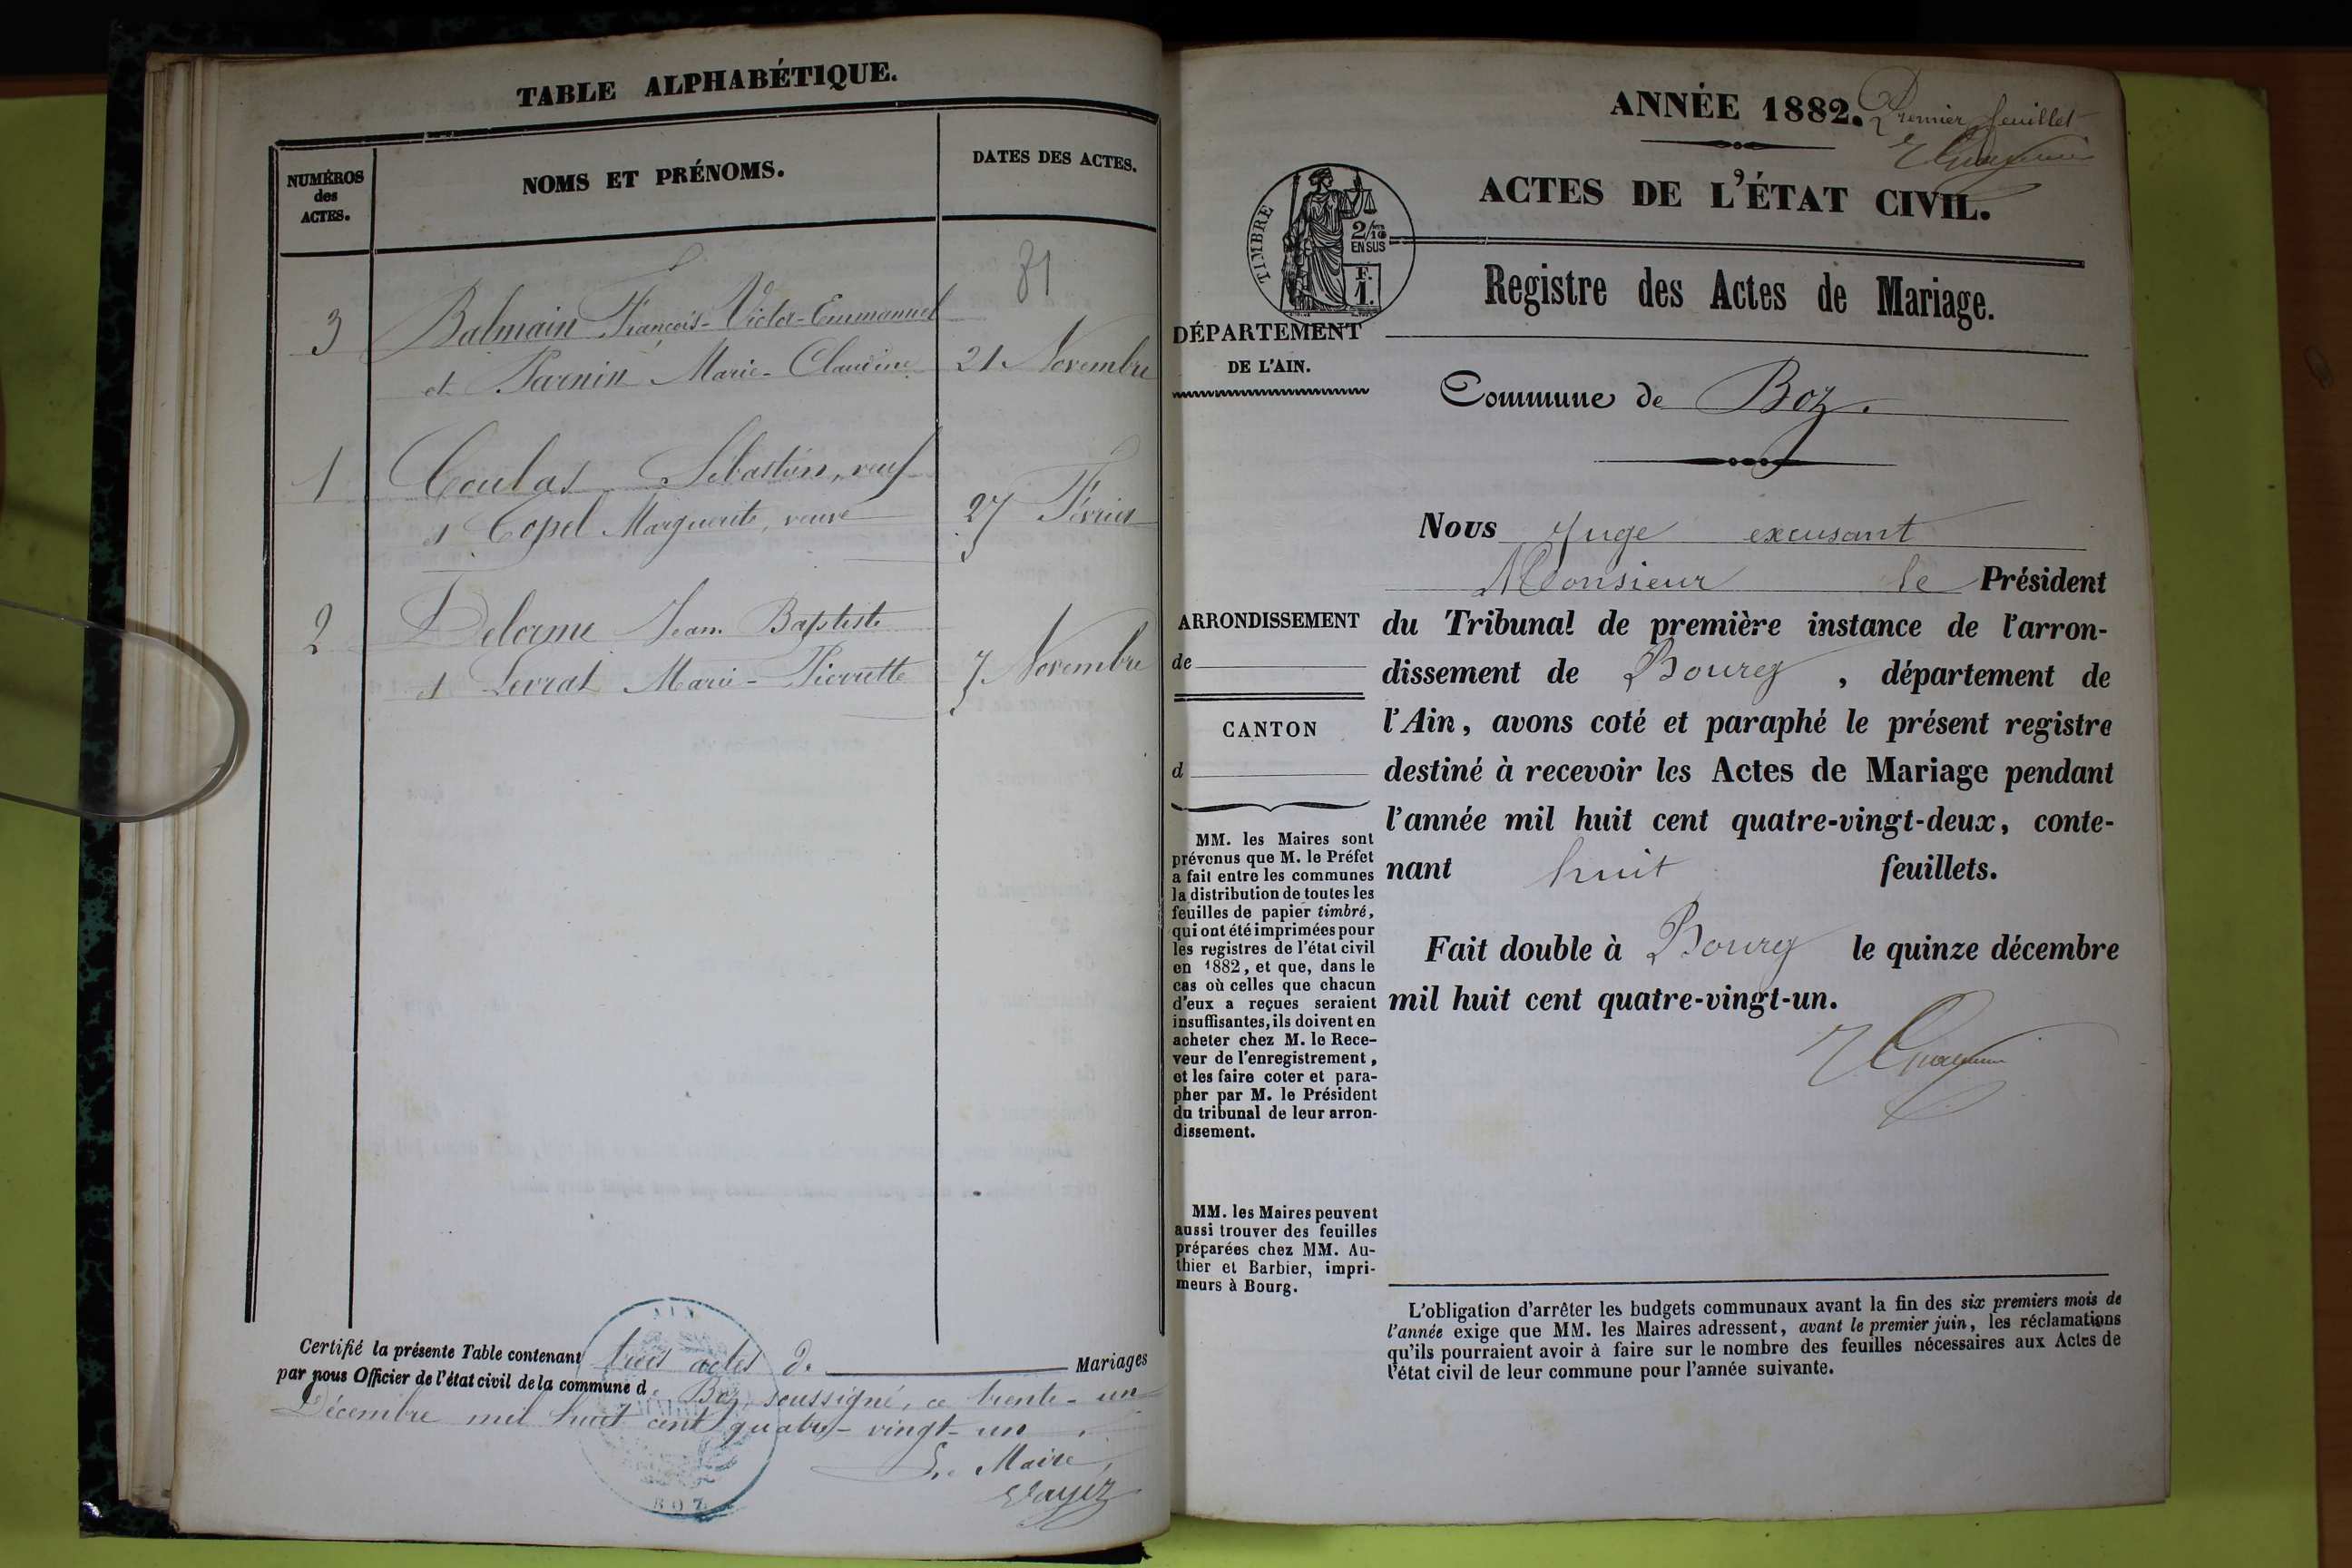 TABLE ALPHABÉTIQUE.
NUMÉROS
des
ACTES.
NOMS ET PRÉNOMS.
DATES DES ACTES.
81
3
Balmain François-Victor-Emmanuel
et Parnin Marie-Claudine
21 Novembre
1
Coulas Sébastien, veuf
et Copel Marguerite, veuve
27 Février
2
Delorme Jean Baptiste
et Levrat Marie-Pierrette
7 Novembre
Certifié la présente Table contenant trois actes de Mariages
par nous Officier de l'état civil de la commune de Boz, soussigné, ce trente-un
Décembre mil huit cent quatre-vingt-un
Le Maire,
AIN
BOZ
ANNÉE 1882.
Premier feuillet
ACTES DE L'ÉTAT CIVIL.
TIMBRE
2/10
EN SUS
F.
1.
Registre des Actes de Mariage.
DÉPARTEMENT
DE L'AIN.
Commune de Boz.
Nous Juge excusant
Monsieur le Président
du Tribunal de première instance de l'arron-
dissement de Bourg, département de
l'Ain, avons coté et paraphé le présent registre
destiné à recevoir les Actes de Mariage pendant
l'année mil huit cent quatre-vingt-deux, conte-
nant huit feuillets.
Fait double à Bourg le quinze décembre
mil huit cent quatre-vingt-un.
ARRONDISSEMENT
de
CANTON
d
MM. les Maires sont
prévenus que M. le Préfet
a fait entre les communes
la distribution de toutes les
feuilles de papier timbré,
qui ont été imprimées pour
les registres de l'état civil
en 1882, et que, dans le
cas où celles que chacun
d'eux a reçues seraient
insuffisantes, ils doivent en
acheter chez M. le Rece-
veur de l'enregistrement,
et les faire coter et para-
pher par M. le Président
du tribunal de leur arron-
dissement.
MM. les Maires peuvent
aussi trouver des feuilles
préparées chez MM. Au-
thier et Barbier, impri-
meurs à Bourg.
L'obligation d'arrêter les budgets communaux avant la fin des six premiers mois de
l'année exige que MM. les Maires adressent, avant le premier juin, les réclamations
qu'ils pourraient avoir à faire sur le nombre des feuilles nécessaires aux Actes de
l'état civil de leur commune pour l'année suivante.